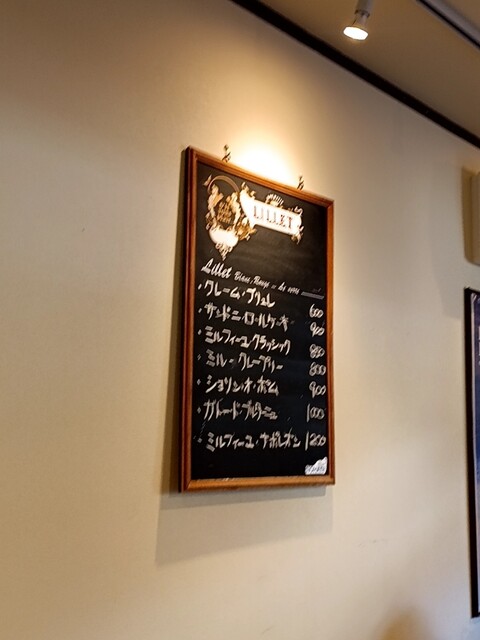 LILLET
Lillet Blanc, Rouge
・クレーム・ブリュレ 600
・サンドニ・ロールケーキ 900
・ミルフィーユ クラッシック 850
・ミル・クレープリー 800
・ショソン・オ・ポム 900
・ガレード・ブルターニュ 1000
・ミルフィーユ ナポレオン 1200